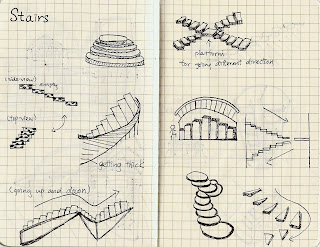 Stairs
(side view)
empty
(top view)
getting thick
(going up and down)
platform
for going different direction